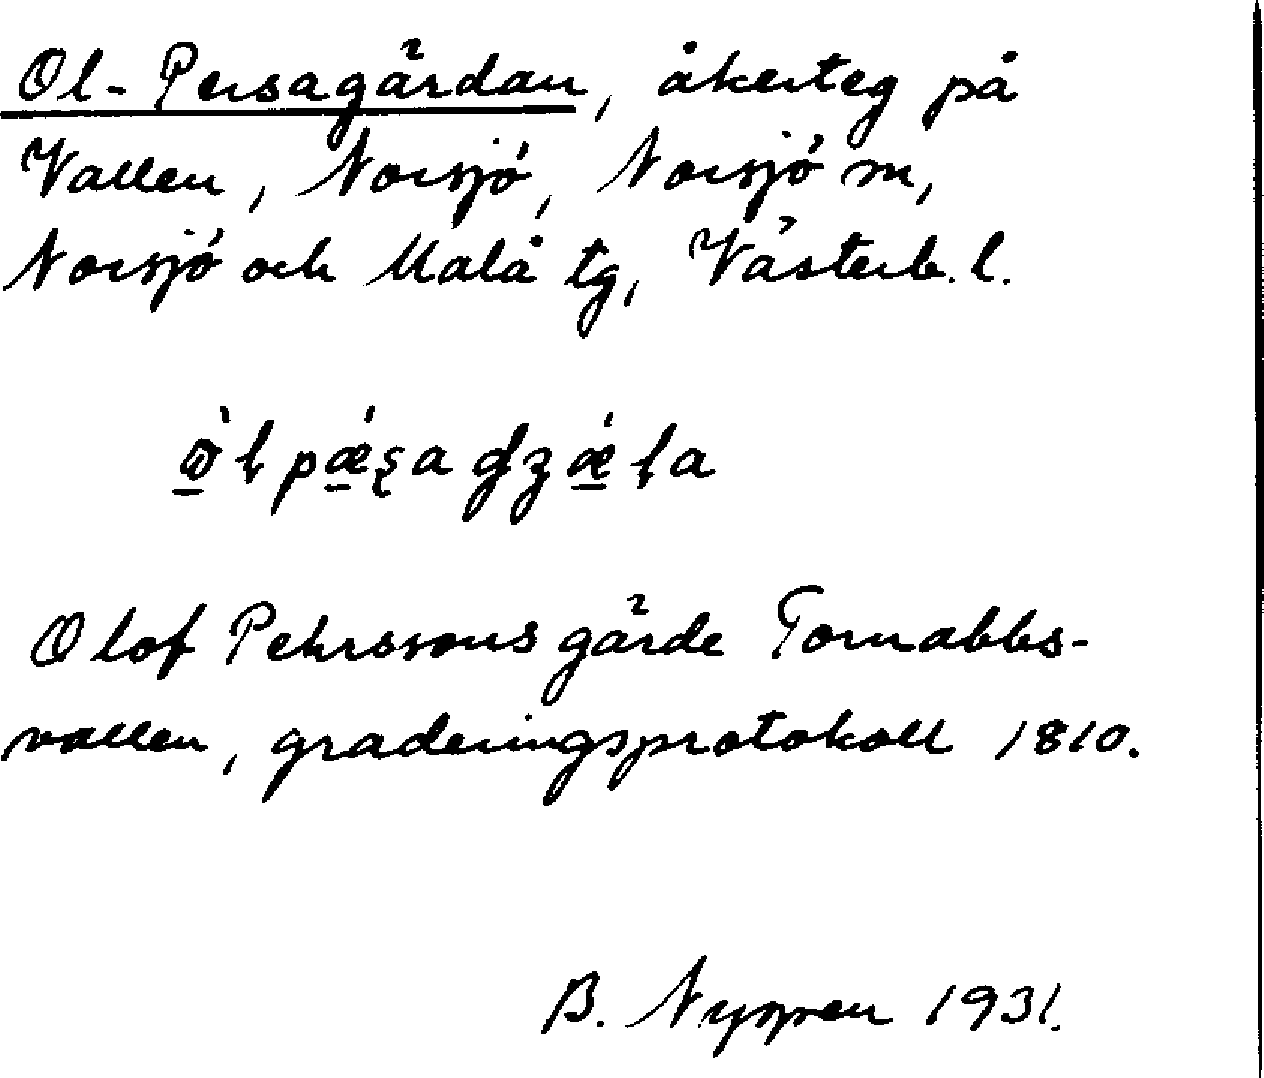 Ol-Persagärdan, åkerteg på
Vallen, Norsjö, Norsjö sn,
Norsjö och Malå tg, Västerb. l.
Olof Pehrssons gärde Tornabbs-
vallen, graderingsprotokoll 1810.
B. Nyssen 1931.